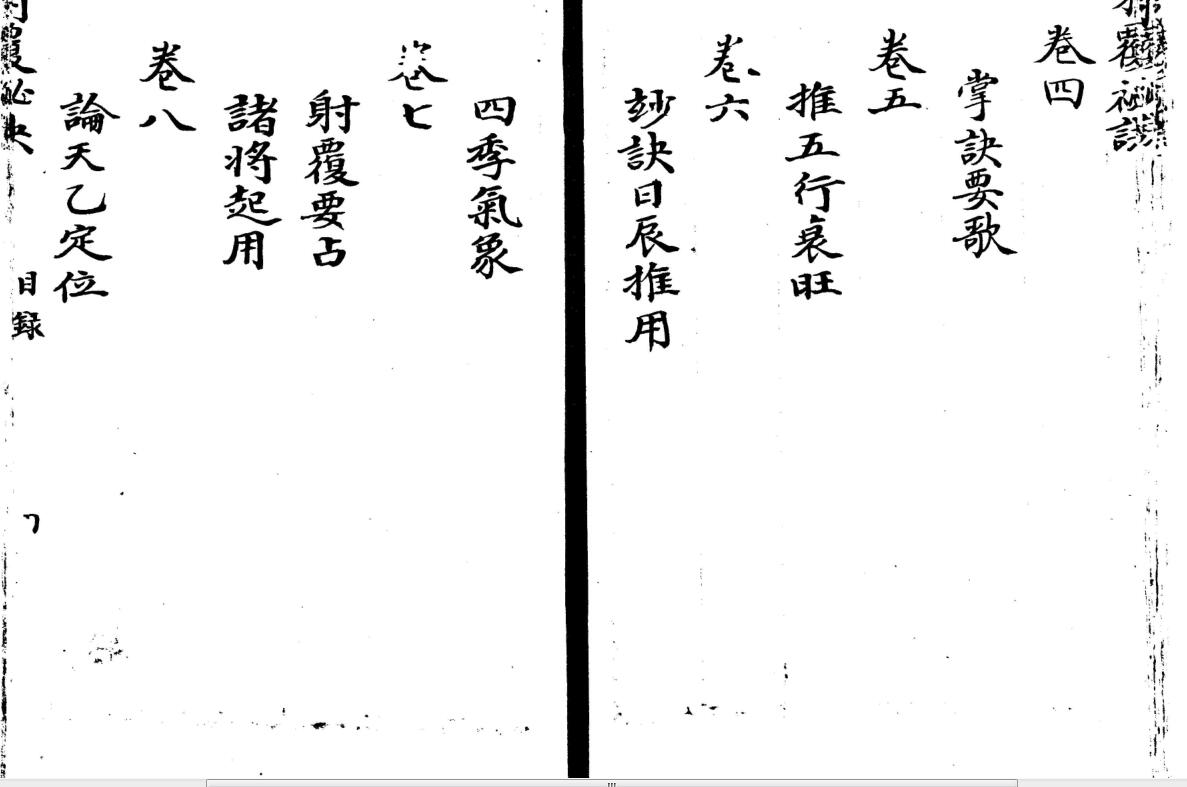 卷四
掌訣要歌
卷五
推五行衰旺
卷六
玅訣日辰推用
四季氣象
卷七
射覆要占
諸将起用
卷八
論天乙定位
射覆秘
目錄